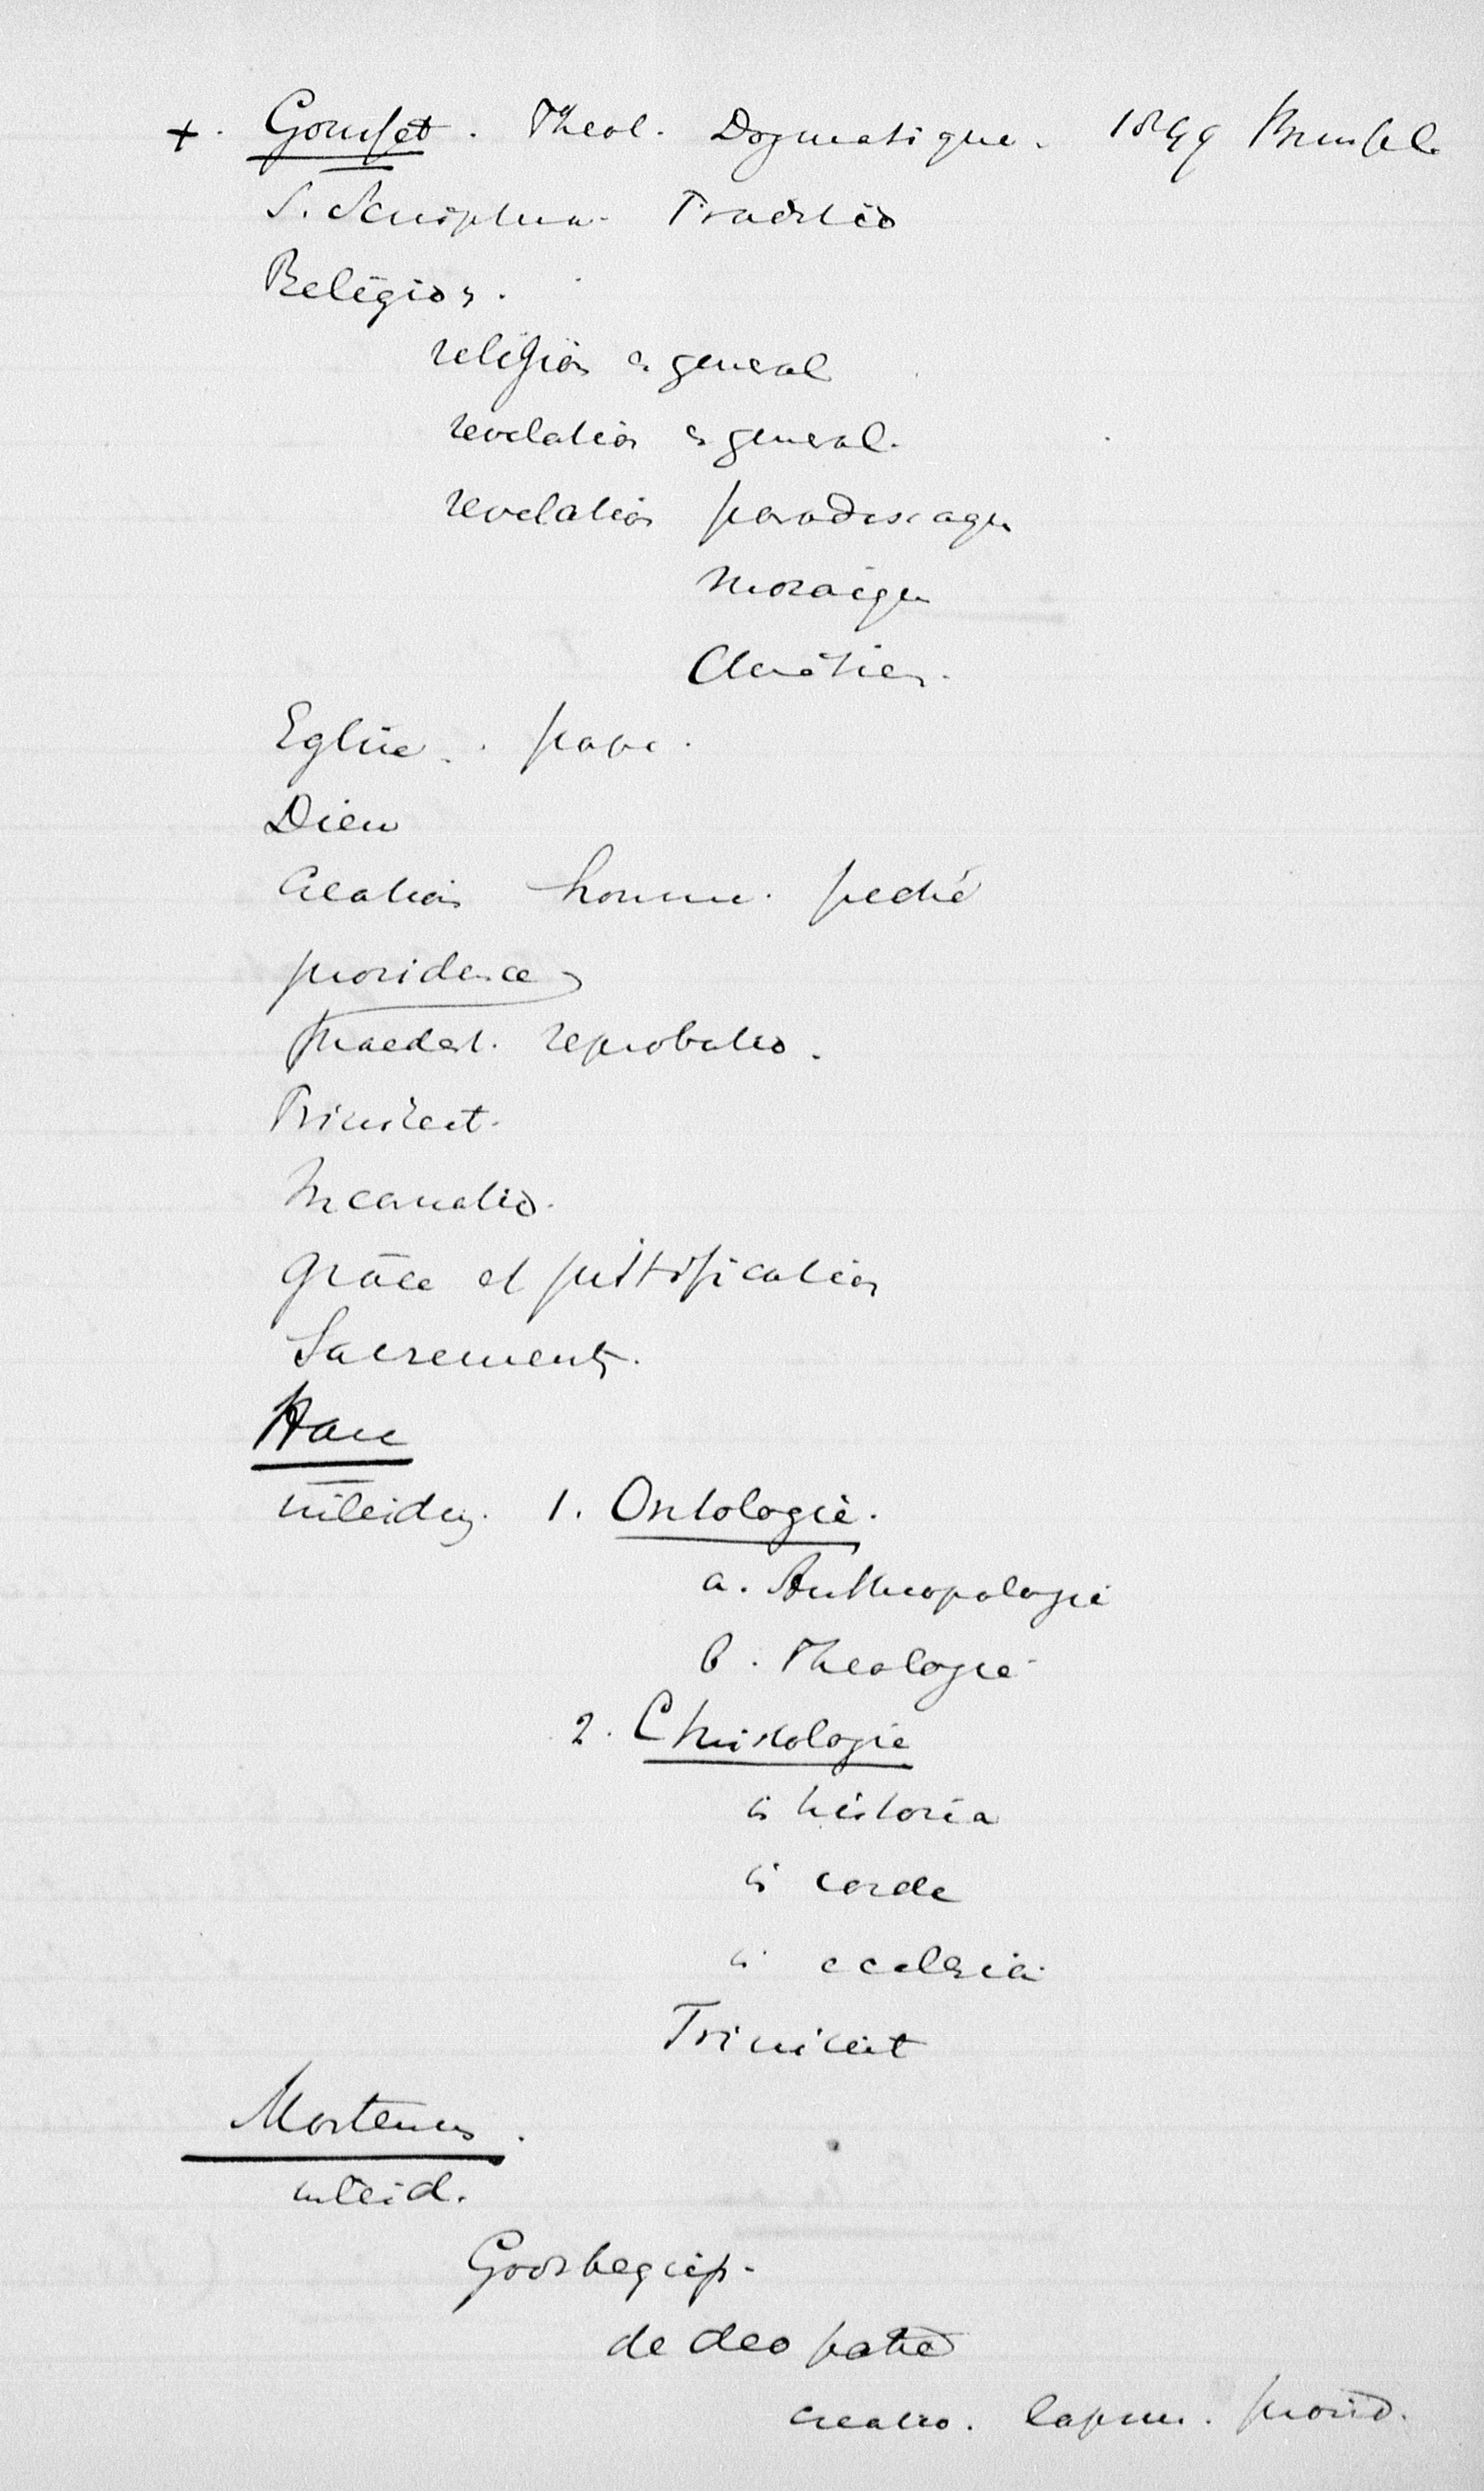 +. Gousset. Theol. Dogmatique. 1849 Brussel.
S. Scriptura. Traditio
Religion.
religion en general
revelation en general.
revelation paradisiaque
mosaique
Chrétien.
Eglise. pape.
Dieu
Création homme. peché
providence
praedest. reprobatio.
Triniteit.
Incarnatio.
Grâce et justification
Sacrements.
Hase
inleiding. 1. Ontologie.
a. Anthropologie
b. Theologie
2. Christologie
in historia
in corde
in ecclesia
Triniteit
Martensen.
inleid.
Godsbegrip.
de deo patre
creatio. lapsus. provid.